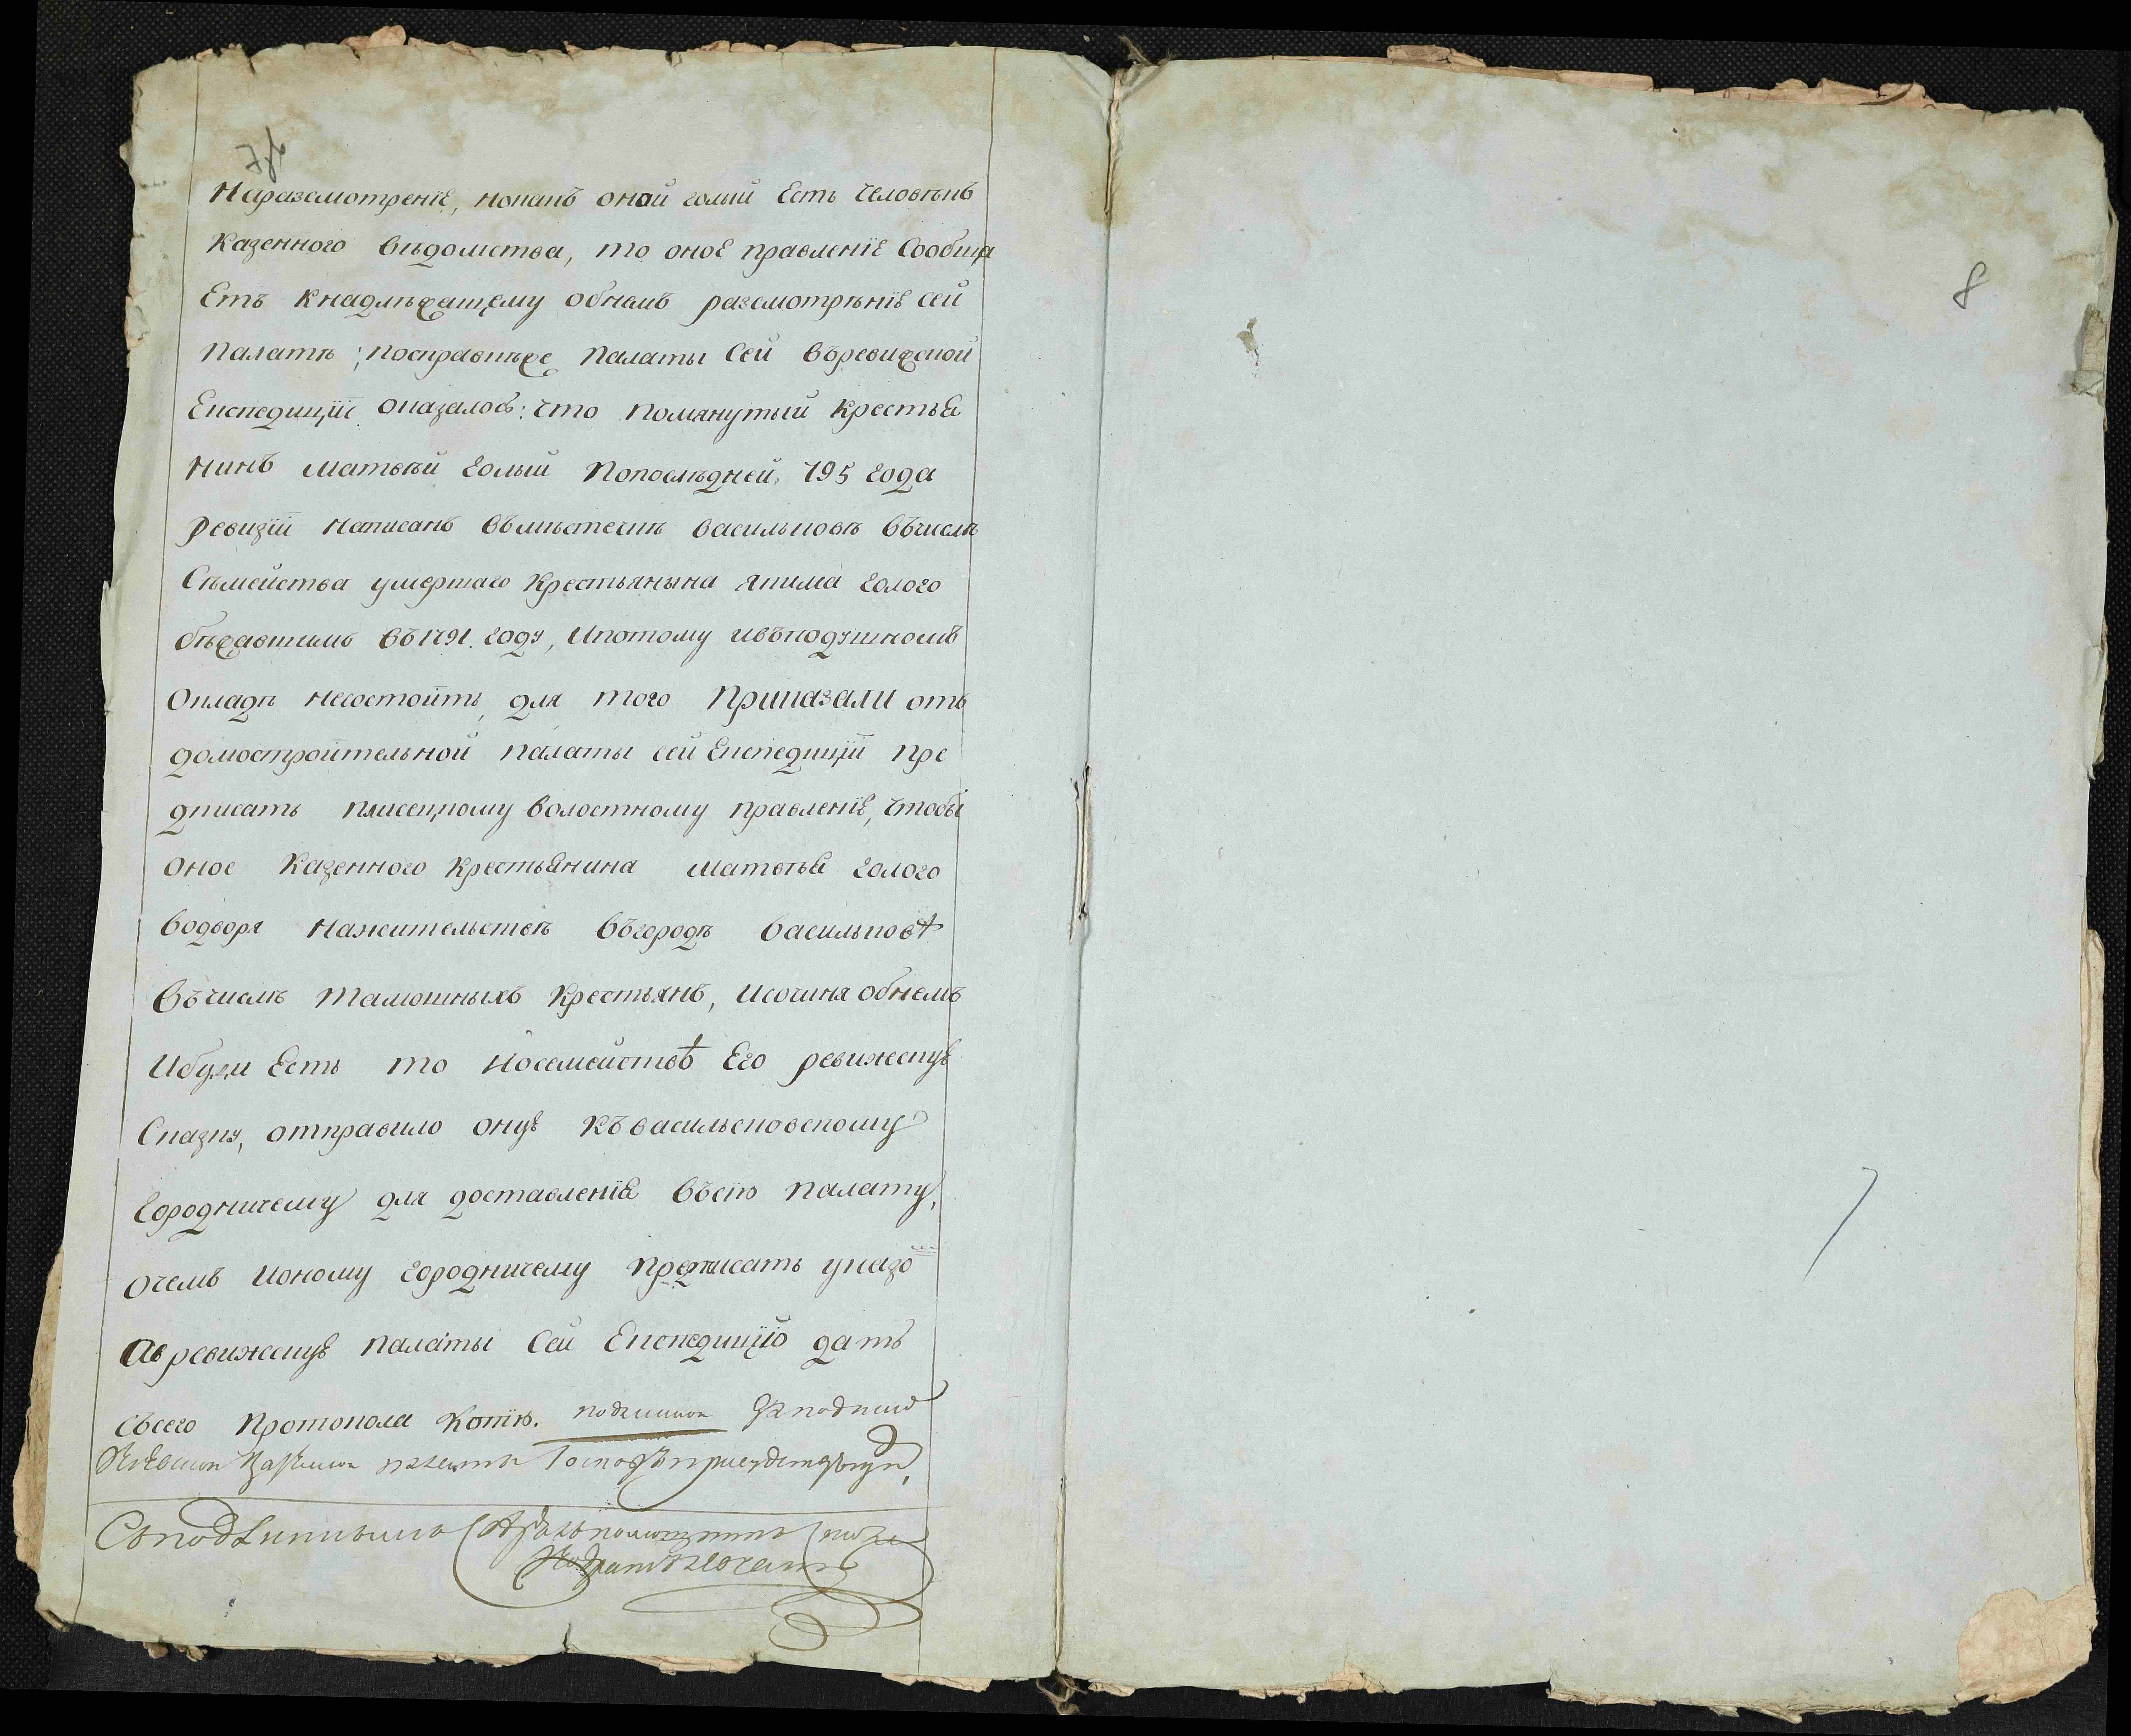 Наразсмотреніе, нонакъ оной голый Есть человѣкъ
Казенного вѣдомства, то оное правленіе Сообща
Етъ Кнадлѣжащему обнемъ разсмотрѣніе Сей
Палатѣ; посправкѣже Палаты Сей въревижской
Експедицїї оказалось: что помянутый Крестья
нинъ матвѣй голый Попослѣдней, 795 года
ревизїї написанъ въмѣстечкѣ василковѣ въчислѣ
Сѣмейства умершаго Крестьянына якима голого
бѣжавшимъ въ 1791. году, Ипотому ивъподушномъ
Окладѣ несостоитъ, для того Приказали отъ
домостроительной палаты сей Експедицїї пре
дписать плисецкому волостному правленіе, чтобы
оное Казенного Крестьянина матвѣя голого
водворя нажительствѣ въгородѣ василковѣ
въчислѣ тамошныхъ Крестьянъ, Исочиня обнемъ
Ибуди Есть то носемействѣ Его ревижскуе
Сказку, отправило онуе къвасильковскому
Городничему для доставленія въсію палату,
очемъ Ионому городничему предписать указо
Авъ ревижскуе палаты Сей Експедицїю дать
съсего протокола копїю. подлинной заподписо
Кіевской Казенной палаты Господъ присудствующи,
Съподлиннымъ
8